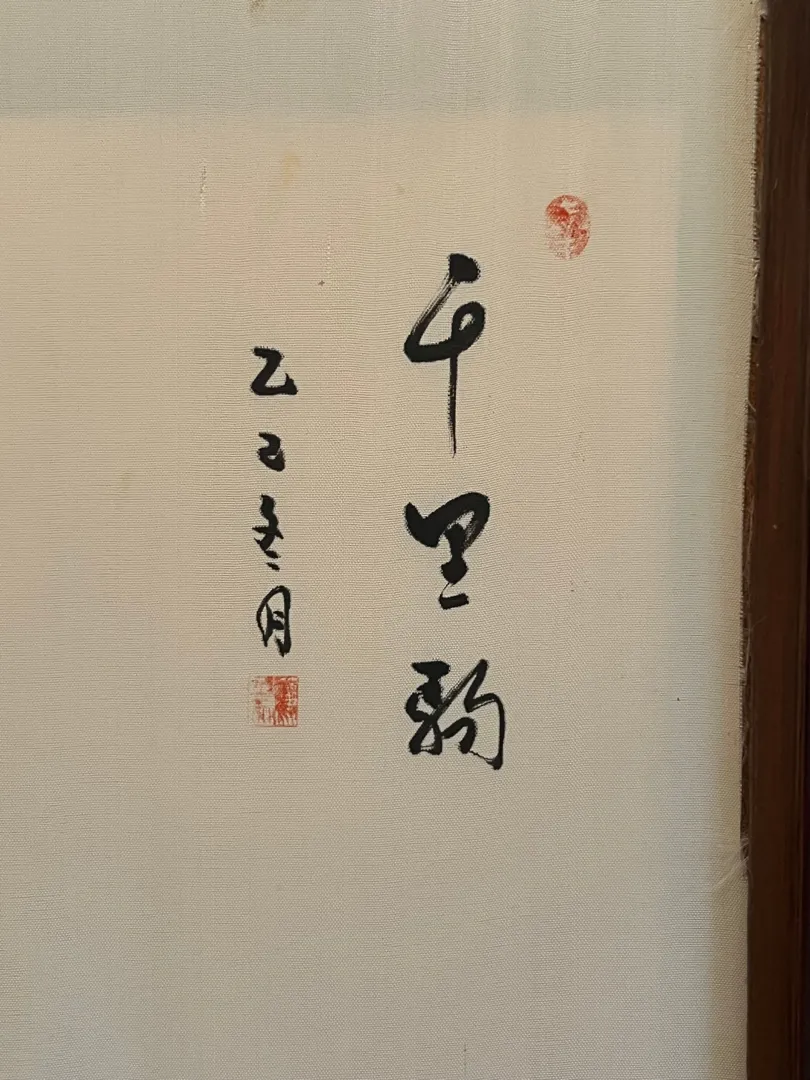 千里駒
乙己冬月